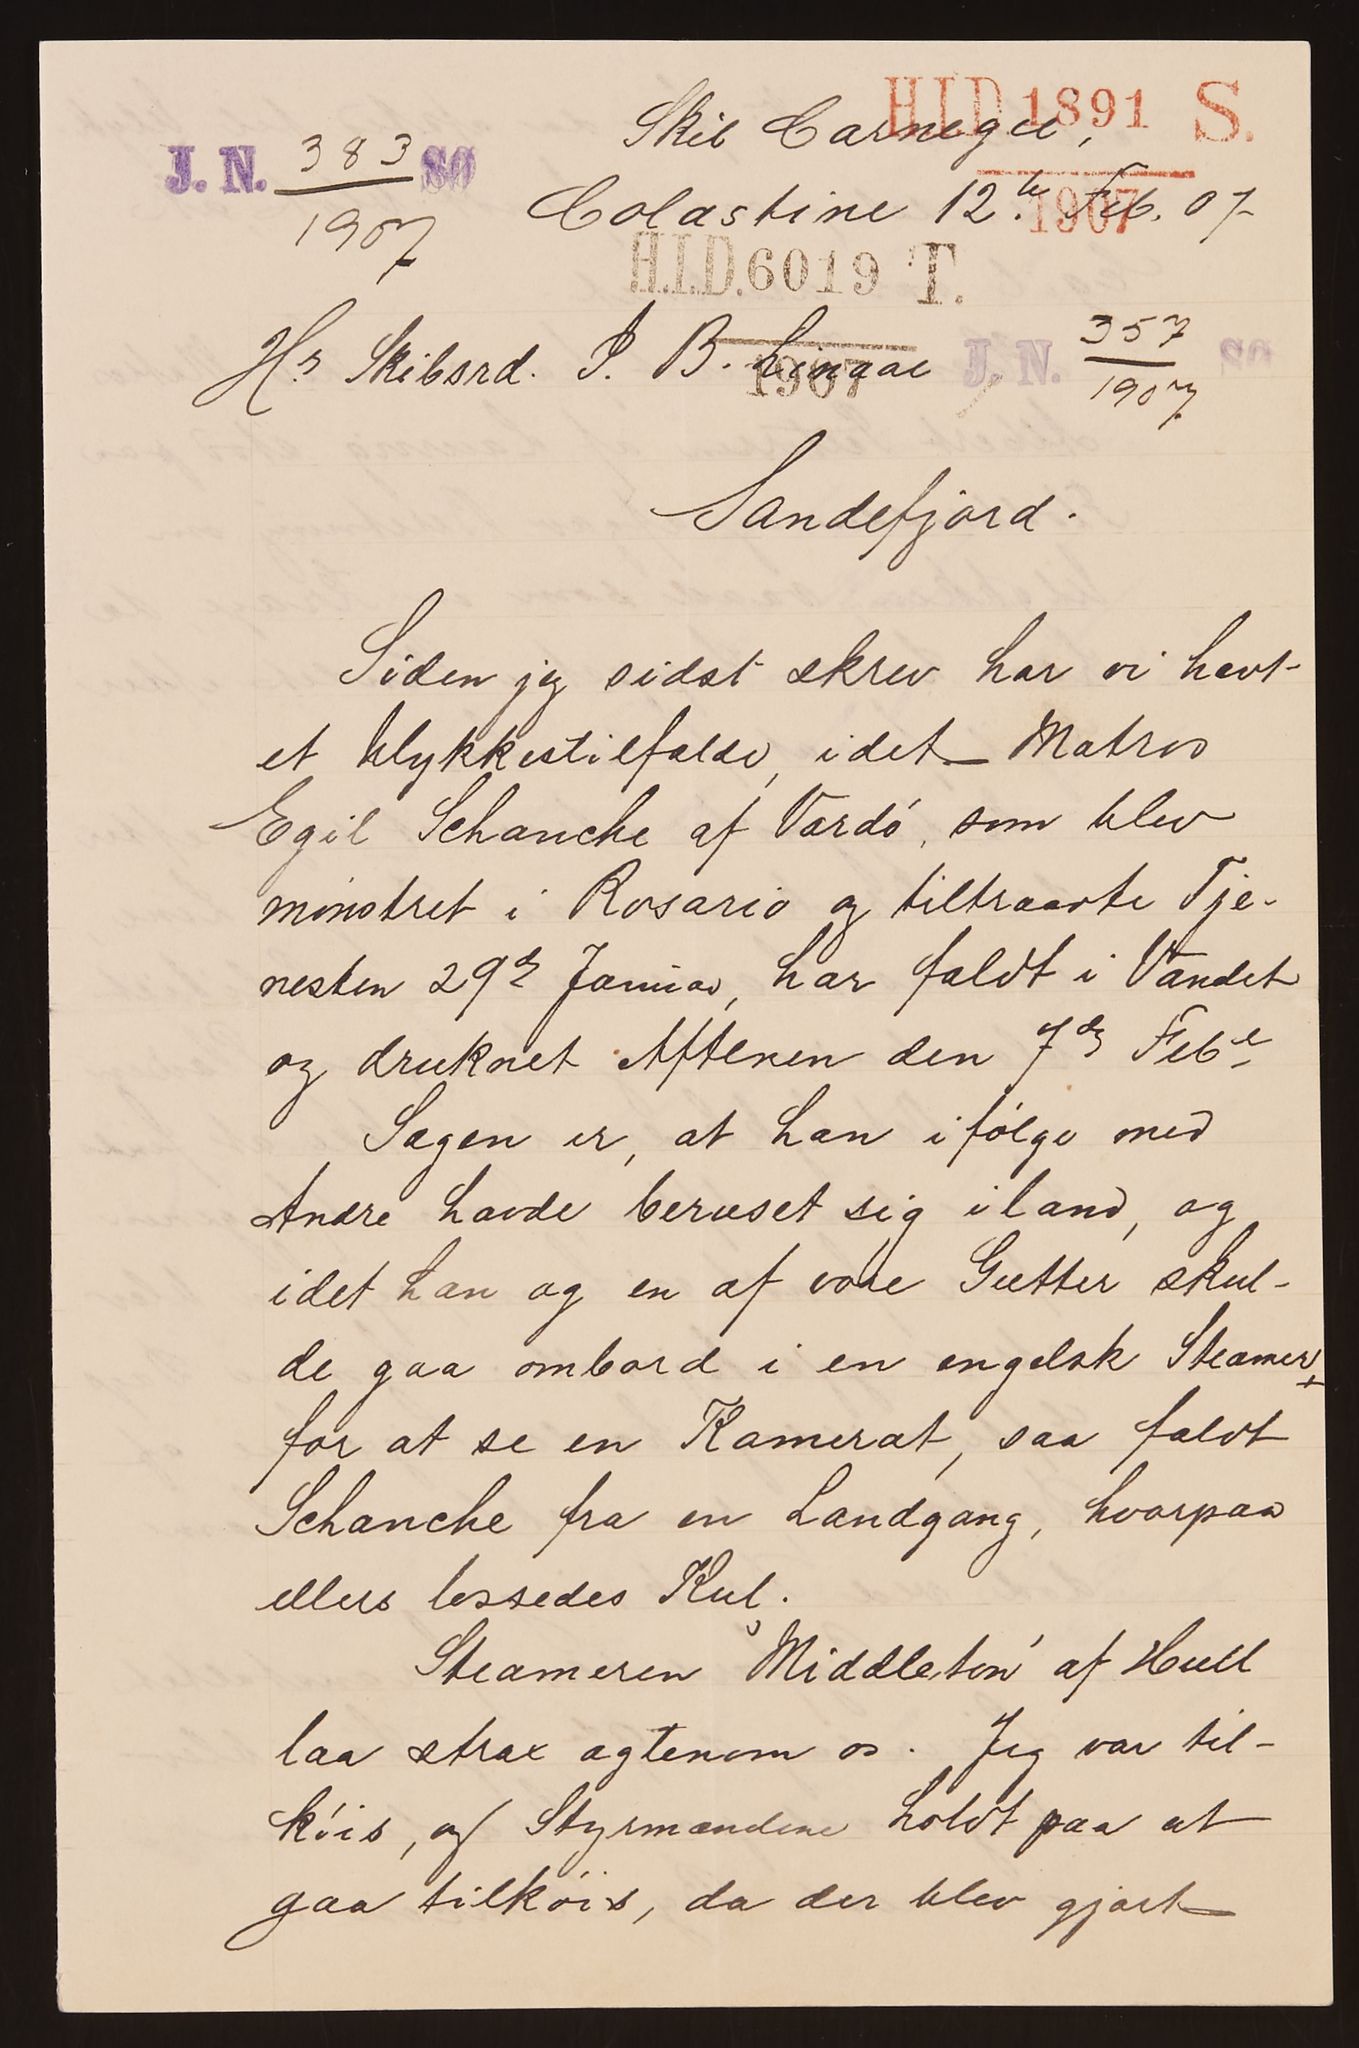 H.I.D. 1891 S.
1907
J. N. 383 SØ
1907
Skib Carnegie,
Colastine 12te Feb. 07
H.I.D. 6019 T.
1907
J. N. 357 SØ
1907
Hr Skibsrd. P. B. Lingaae
Sandefjord.
Siden jeg sidst skrev har vi havt
et Ulykkestilfælde, idet Matros
Egil Schanche af Vardó, som blev
mónstret i Rosario og tiltraadte Tje-
nesten 29de Januar, har faldt i Vandet
og druknet Aftenen den 7de Feb.
Sagen er, at han ifólge med
Andre havde beruset sig iland, og
idet han og en af vore Gutter skul-
de gaa ombord i en engelsk Steamer
for at se en Kamerat, saa faldt
Schanche fra en Landgang, hvorpaa
ellers lossedes Kul.
Steameren "Middleton" af Hull
laa strax agtenom os. Jeg var til-
kóis, og Styrmændene holdt paa at
gaa tilkóis, da der blev gjort